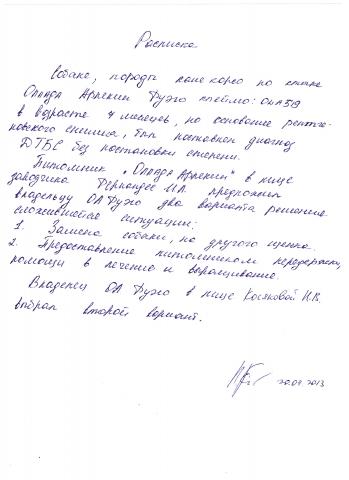 Расписка
Собаке, породы кане корсо по кличке
Оланда Арлекин Дуэо клеймо: ОНЛ 519
в возрасте 4 месяцев, на основание рентге-
новского снимка, был поставлен диагноз
ДТБС без постановки степени.
Питомник "Оланда Арлекин" в лице
заводчика Фернандес И.А. предложил
владельцу ОА Дуэо два варианта решение
сложившейся ситуации:
1. Замена собаки, на другого щенка.
2. Предоставление питомником передержки,
помощи в лечение и выращивание.
Владелец ОА Дуэо в лице Косяковой И.В.
выбрал второй вариант.
20.09.2013